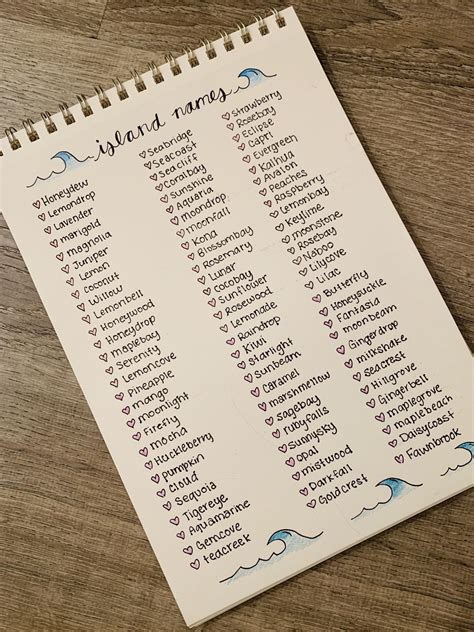 island names
Honeydew
Lemondrop
Lavender
marigold
magnolia
Juniper
Lemon
coconut
Willow
Lemonbell
Honeywood
Honeydrop
maplebay
Serenity
Lemoncove
Pineapple
mango
moonlight
Firefly
mocha
Huckleberry
pumpkin
cloud
Sequoia
Tigereye
Aquamarine
Gemcove
teacreek
Seabridge
Seacoast
Seacliff
Coralbay
Sunshine
Aquaria
moondrop
moonfall
Kona
Blossombay
Rosemary
Lunar
cocobay
Sunflower
Rosewood
Lemonade
Raindrop
Kiwi
Starlight
Sunbeam
Caramel
marshmellow
Sagebay
rubyfalls
Sunnysky
Opal
mistwood
Darkfall
Goldcrest
strawberry
Rosebay
Eclipse
Capri
Evergreen
Kailua
Avalon
Peaches
Raspberry
Lemonbay
Keylime
moonstone
Rosebay
Naboo
Lilycove
Lilac
Butterfly
Honeysuckle
Fantasia
moonbeam
Gingerdrop
milkshake
seacrest
Hillgrove
Gingerbell
maplegrove
maplebeach
Daisycoast
Fawnbrook